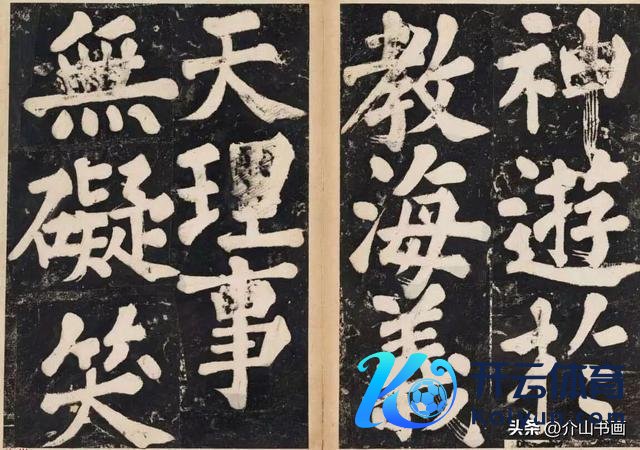 神遊於
教海義
天理事
無礙笑
开云体育
头条@介山书画